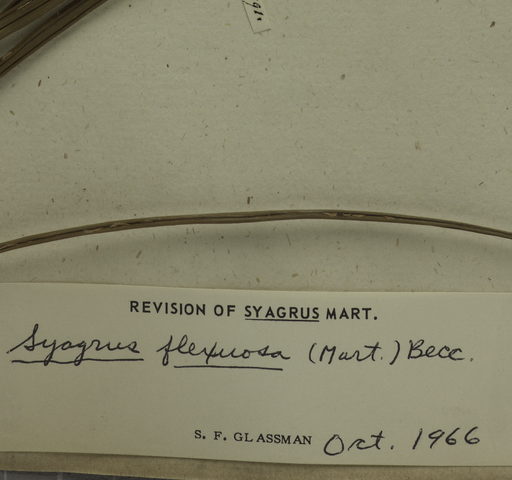 REVISION OF SYAGRUS MART.
Syagrus flexuosa (Mart.) Becc.
S. F. GLASSMAN Oct. 1966